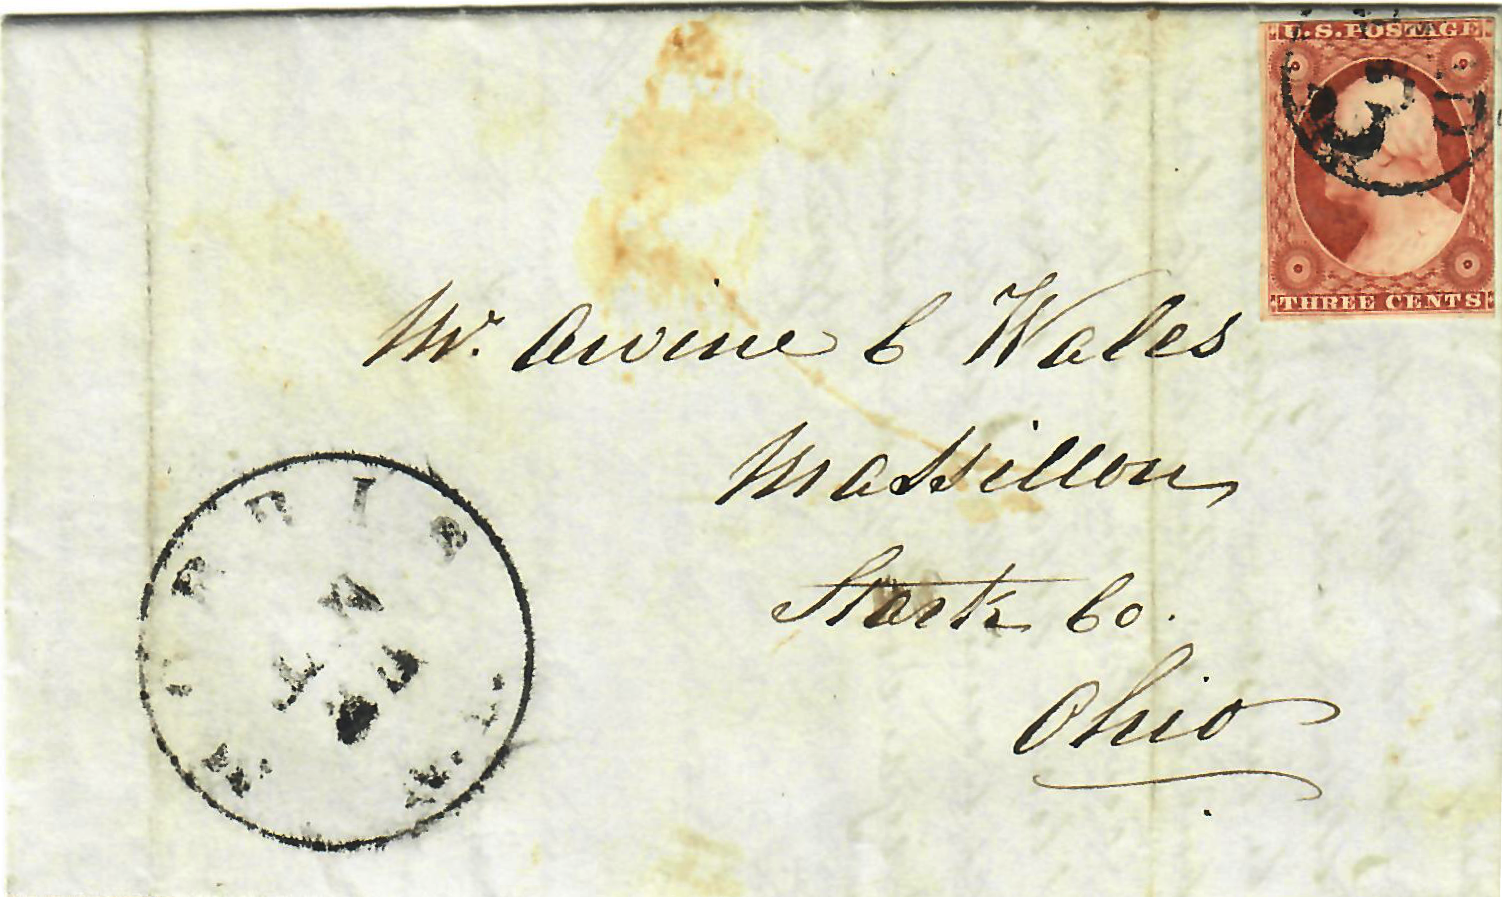 U.S. POSTAGE
THREE CENTS
Mr. Arvine C Wales
Massillon
Stark Co.
Ohio
MORRIS
N.Y.